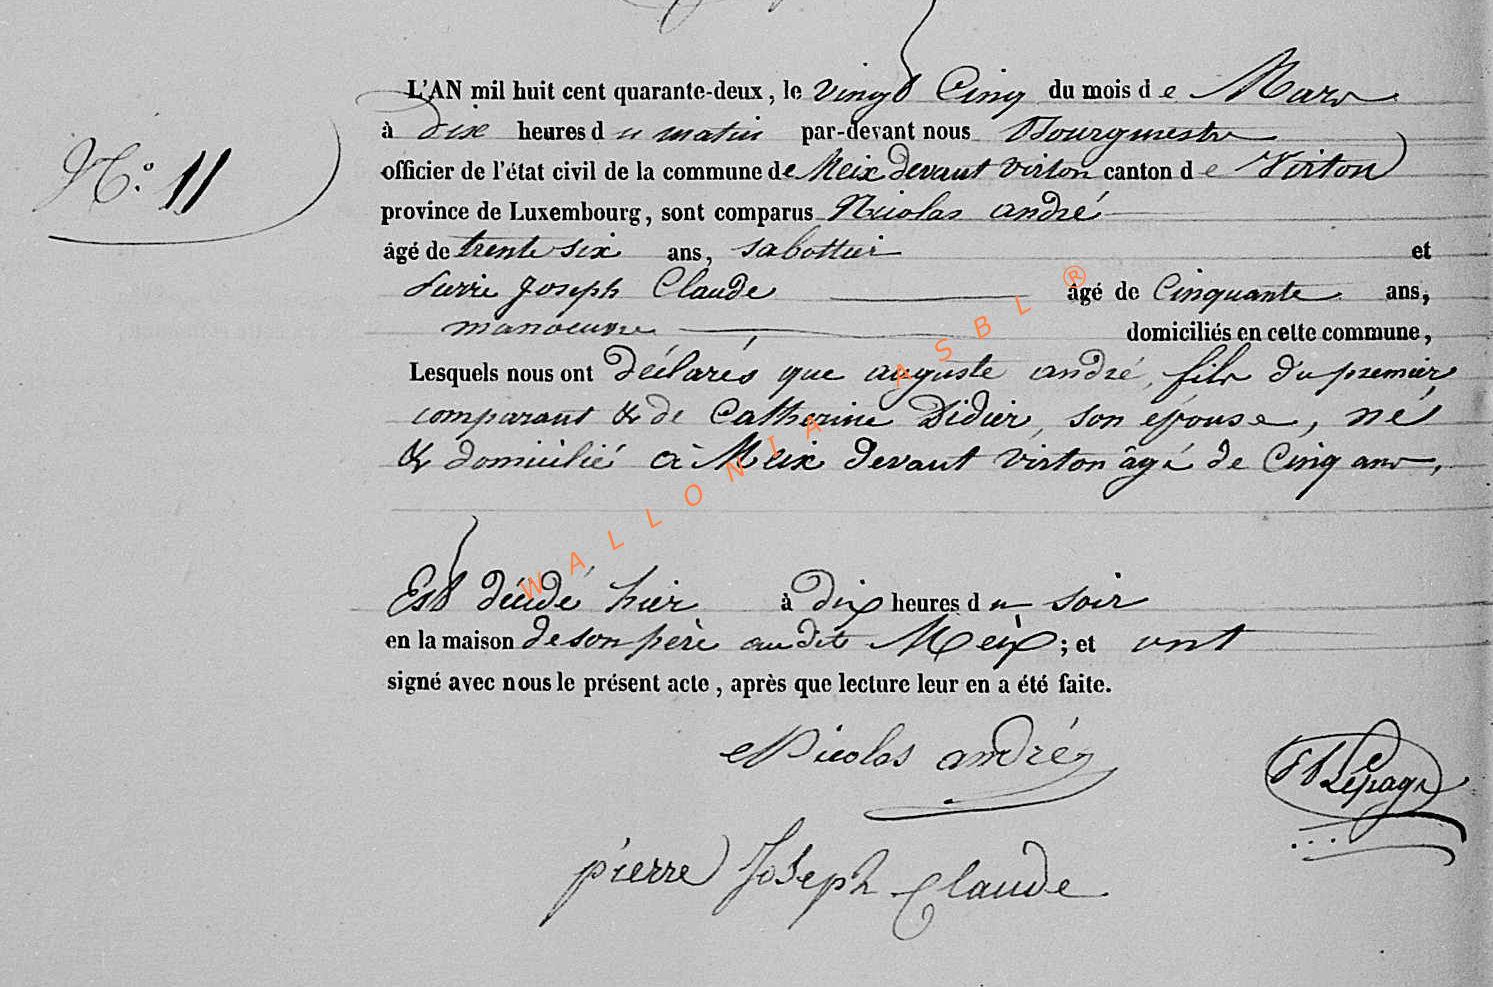 L'AN mil huit cent quarante-deux, le vingt Cinq du mois de Mars
à dix heures du matin par-devant nous Bourgmestre
N.º 11
officier de l'état civil de la commune de Meix devant Virton canton de Virton
province de Luxembourg, sont comparus Nicolas andré
âgé de trente six ans, sabottier et
Pierre Joseph Claude âgé de Cinquante ans,
manoeuvre domiciliés en cette commune,
Lesquels nous ont déclarés que auguste andré, fils du premier
comparant & de Catherine Didier, son épouse, né
& domicilié à Meix devant virton âgé de Cinq ans,
Est décédé hier à dix heures du soir
en la maison de son père audit Meix; et ont
signé avec nous le présent acte, après que lecture leur en a été faite.
Nicolas andré
Lepage
pierre Joseph Claude
WALLONIA ASBL ®